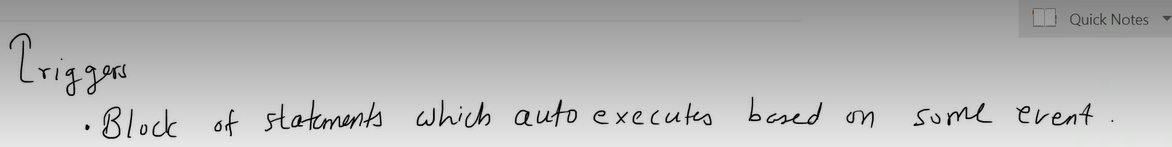 Quick Notes
Triggers
• Block of statements which auto executes based on some event.